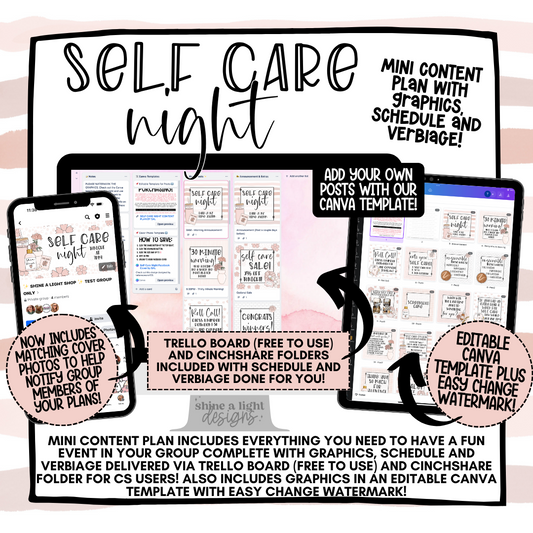 SELF CARE
night
MINI CONTENT
PLAN WITH
graPHICS,
SCHEDULE AND
VERBIAGE!
ADD YOUR OWN
POSTS WITH OUR
CANVA TEMPLATE!
SELF CARE
night
SHINE A LIGHT SHOP
TEST GROUP
ONLY
Private group
Edit
HOW TO SAVE:
SELF CARE
night
SELF CARE
night
30 MINUTE
warning!
self care
SALE!
Roll Call!
CONGRATS
winners!
Roll Call!
30 MINUTE
warning!
NOW INCLUDES
MATCHING COVER
PHOTOS TO HELP
NOTIFY GROUP
MEMBERS OF
YOUR PLANS!
TRELLO BOARD (FREE TO USE)
AND CINCHSHARE FOLDERS
INCLUDED WITH SCHEDULE AND
VERBIAGE DONE FOR YOU!
EDITABLE
CANVA
TEMPLATE PLUS
EASY CHANGE
WATERMARK!
shine a light
designs
MINI CONTENT PLAN INCLUDES EVERYTHING YOU NEED TO HAVE A FUN
EVENT IN YOUR GROUP COMPLETE WITH GRAPHICS, SCHEDULE AND
VERBIAGE DELIVERED VIA TRELLO BOARD (FREE TO USE) AND CINCHSHARE
FOLDER FOR CS USERS! ALSO INCLUDES GRAPHICS IN AN EDITABLE CANVA
TEMPLATE WITH EASY CHANGE WATERMARK!